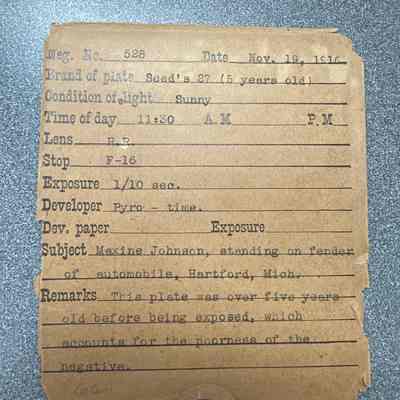 Neg. No. 528 Date Nov. 19, 1916
Brand of plate Seed's 27 (5 years old)
Condition of light Sunny
Time of day 11:30 A.M P.M
Lens R.R.
Stop F-16
Exposure 1/10 sec.
Developer Pyro - time.
Dev. paper Exposure
Subject Maxine Johnson, standing on fender
of automobile, Hartford, Mich.
Remarks This plate was over five years
old before being exposed, which
accounts for the poorness of the
negative.